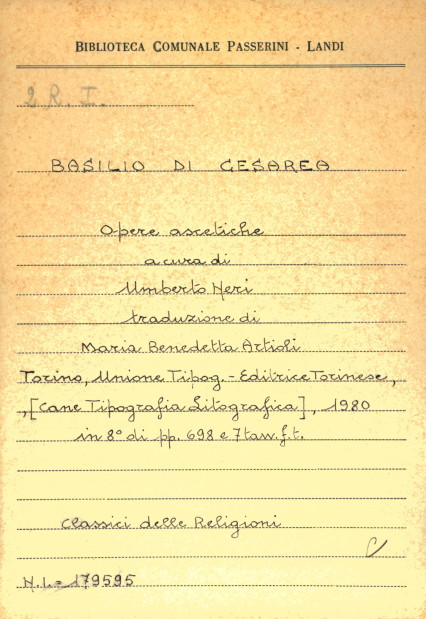 BIBLIOTECA COMUNALE PASSERINI - LANDI
2 R. I.
BASILIO DI CESAREA
Opere ascetiche
a cura di
Umberto Neri
traduzione di
Maria Benedetta Artioli
Torino, Unione Tipog. - Editrice Torinese,
,[Cane Tipografia Litografica], 1980
in 8° di pp. 698 e 7 tavv. f. t.
Classici delle Religioni
N.I. = 179595